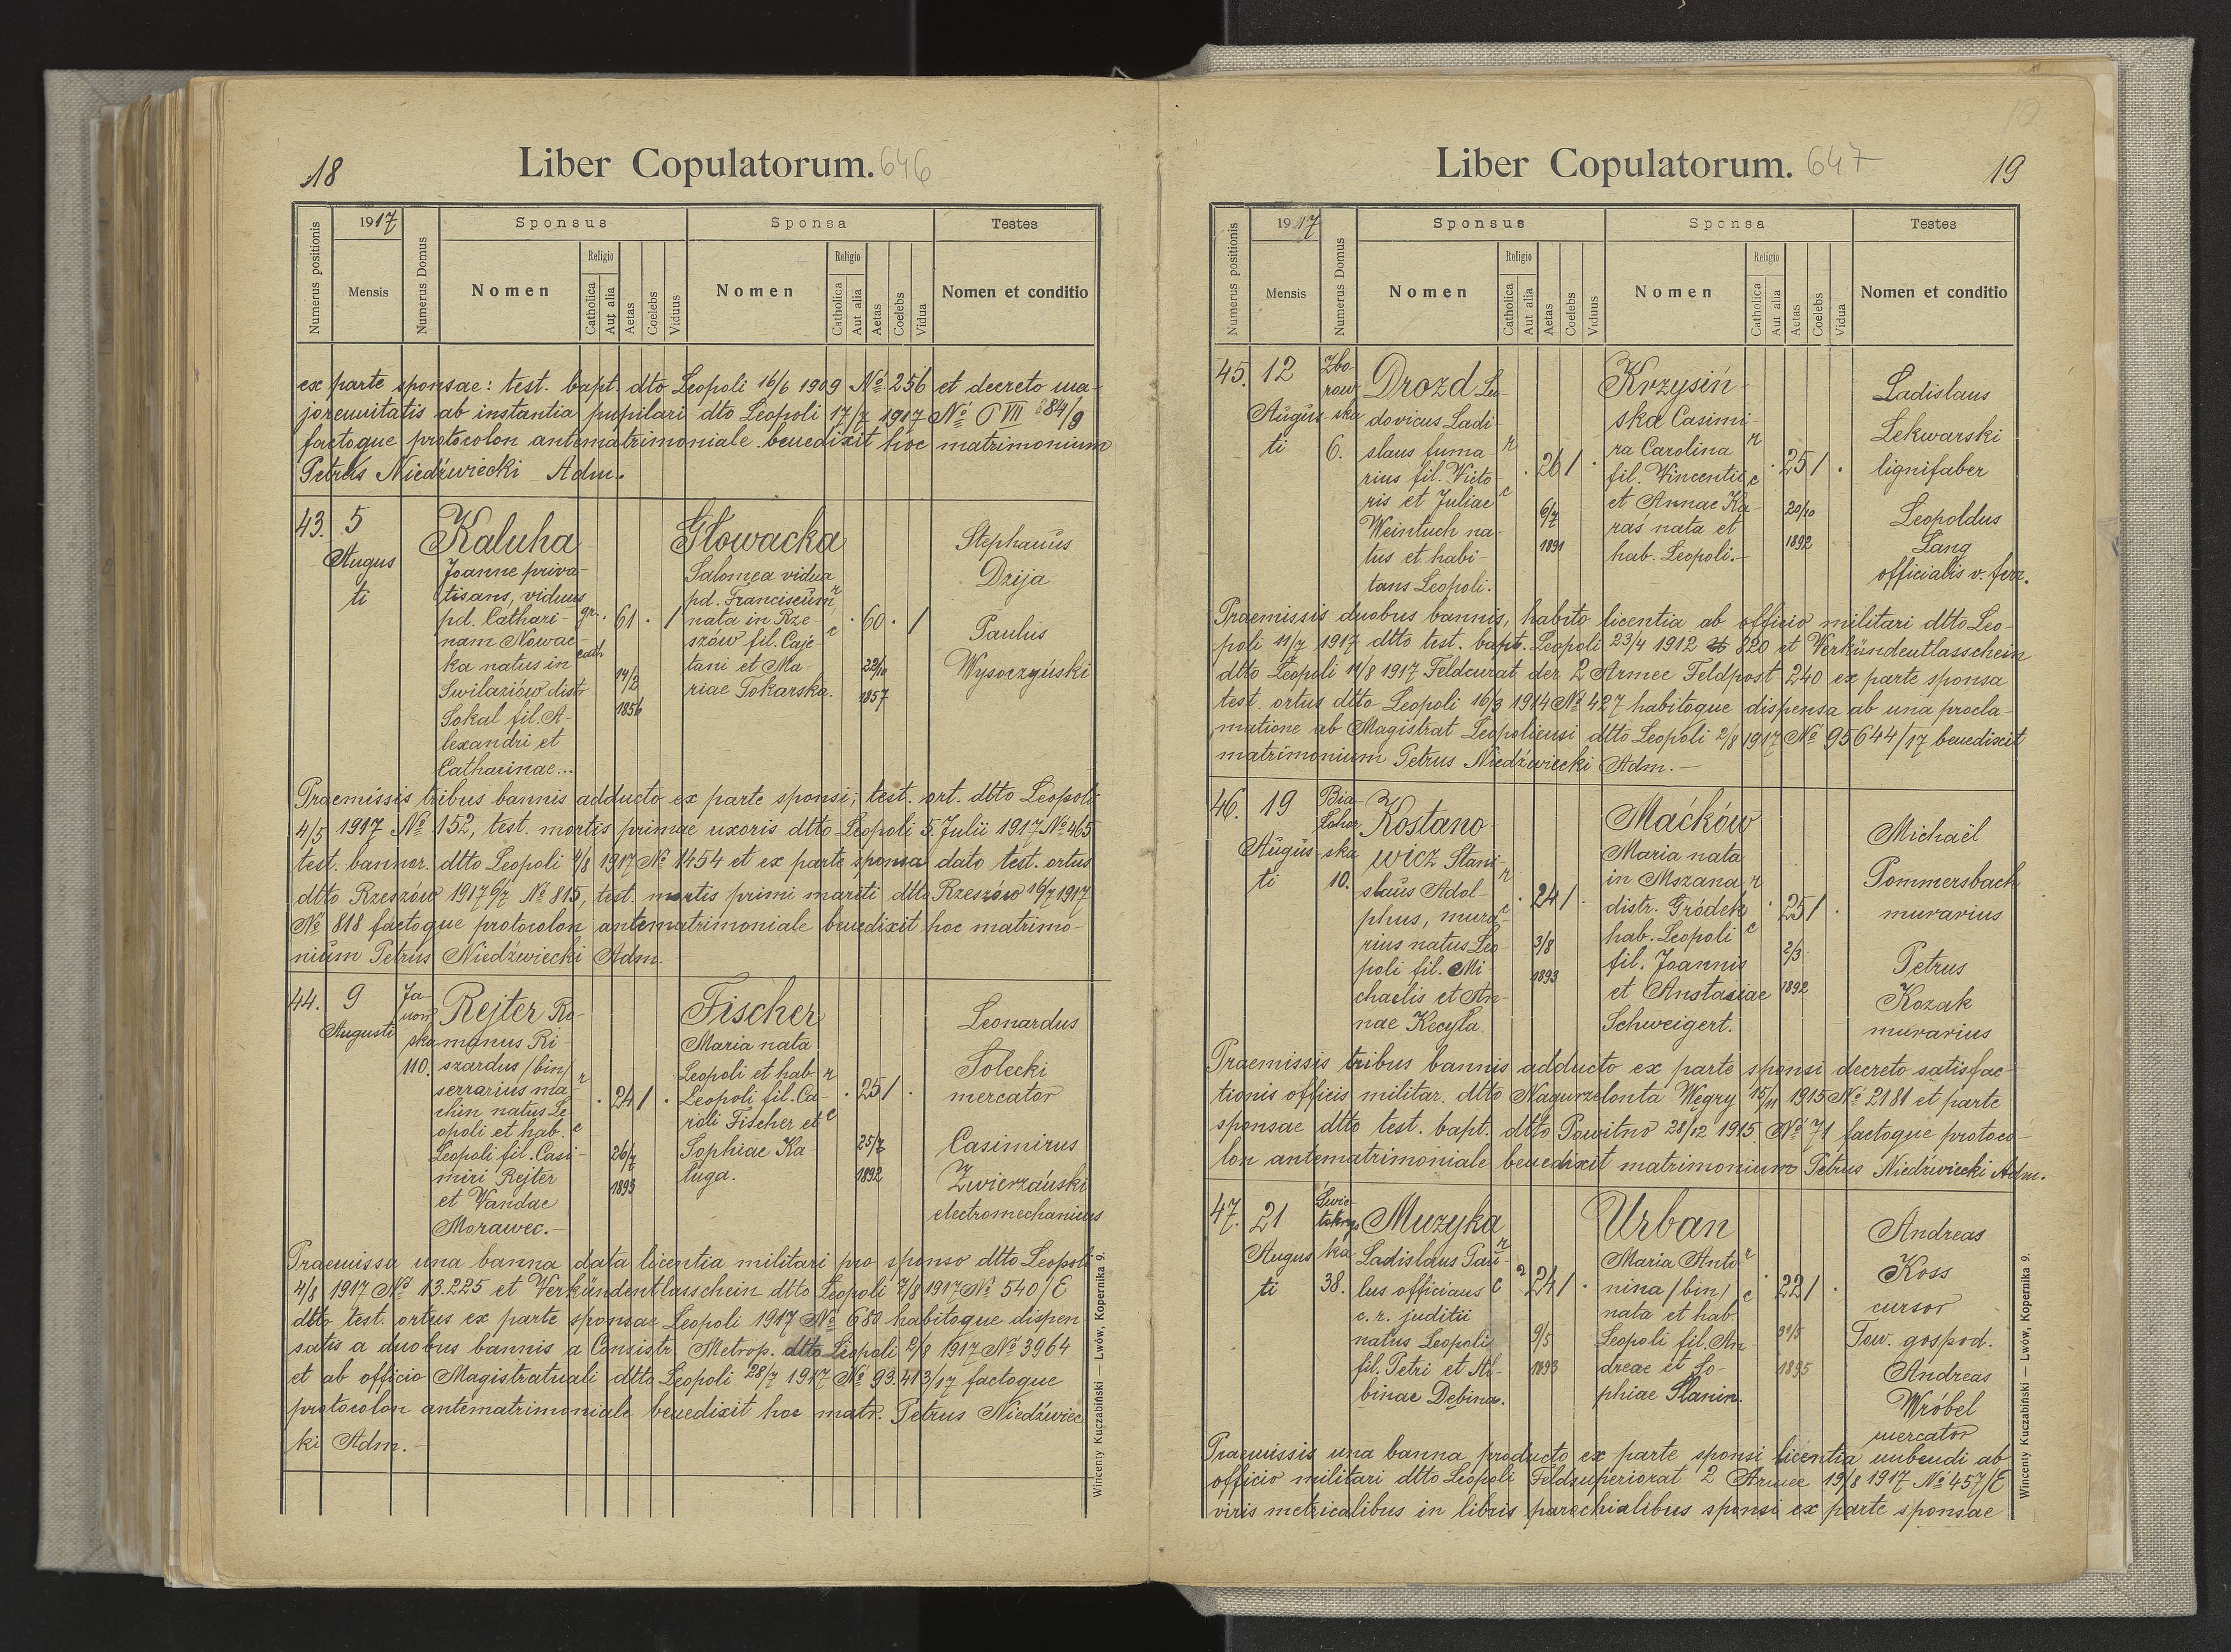 18
Liber Copulatorum. 646
Numerus positionis
1917
Mensis
Numerus Domus
Sponsus
Nomen
Religio
Catholica
Aut alia
Aetas
Coelebs
Viduus
Sponsa
Nomen
Religio
Catholica
Aut alia
Aetas
Coelebs
Vidua
Testes
Nomen et conditio
ex parte sponsae: test. bapt. dto Leopoli 16/6 1909 № 256 et decreto ma-
jorennitatis ab instantia pupilari dto Leopoli 17/7 1917 № VII 884/9
factoque protocolon antematrimoniale benedixit hoc matrimonium
Petrus Niedźwiecki Adm.
43. 5
Augus
ti
Kaluha
Joanne priva-
tisans, viduus
pd. Cathari-
nam Nowac-
ka natus in
distr
Sokal fil. A-
lexandri et
Catharinae...
gr.
cath
61 . /
14/2
1856
Głowacka
Salomea vidua
pd. Franciscum
nata in Rze-
szów fil. Caje-
tani et Ma-
riae Tokarska.
r
c
. 60 . /
22/10
1857
Stephanus
Drija
Paulus
Wysoczyński
Praemissis tribus bannis adducto ex parte sponsi; test. ort. dtto Leopoli
4/5 1917 № 152, test. mortis primae uxoris dtto Leopoli 5. Julii 1917 № 465
test. bannor. dtto Leopoli 4/8 1917 № 1454 et ex parte sponsa dato test. ortus
dtto Rzeszów 1917 6/7 № 815, test. mortis primi mariti dtto Rzeszów 16/7 1917
№ 818 factoque protocolon antematrimoniale benedixit hoc matrimo-
nium Petrus Niedźwiecki Adm.
44. 9
Augusti
Ja-
now
ska
110.
Rejter Ro-
manus Ri-
szardus /bin/
serrarius ma-
chin natus Le-
opoli et hab.
Leopoli fil. Casi-
miri Rejter
et Wandae
Morawec.-
r
c
. 24 / .
26/7
1893
Fischer
Maria nata
Leopoli et hab.
Leopoli fil. Ca-
roli Fischer et
Sophiae Ka-
ługa.
r
c
. 25 / .
25/7
1892
Leonardus
Solecki
mercator
Casimirus
Zwierzański
electromechanicus
Praemissa una banna data licentia militari pro sponso dtto Leopoli
4/8 1917 № 13.225 et Verkündentlasschein dtto Leopoli 7/8 1917 № 540/E
dtto test. ortus ex parte sponsae Leopoli 1917 № 680 habitoque dispen
satis a duobus bannis a Consistr. Metrop. dtto Leopoli 2/8 1917 № 3964
et ab officio Magistratuali dtto Leopoli 28/7 1917 № 93.413/17 factoque
protocolon antematrimoniale benedixit hoc matr. Petrus Niedźwiec
ki Adm.-
Wincenty Kuczabiński — Lwów, Kopernika 9.
19
Liber Copulatorum. 647
Numerus positionis
1917
Mensis
Numerus Domus
Sponsus
Nomen
Religio
Catholica
Aut alia
Aetas
Coelebs
Viduus
Sponsa
Nomen
Religio
Catholica
Aut alia
Aetas
Coelebs
Vidua
Testes
Nomen et conditio
45. 12
Augus-
ti
Zbo-
row-
ska
6.
Drozd Lu-
dovicus Ladi-
slaus fuma-
rius fil. Victo-
ris et Juliae
Weintuch na-
tus et habi-
tans Leopoli.
r
c
. 26 / .
6/7
1891
Krzysiń-
ska Casimi-
ra Carolina
fil. Wincentii
et Annae Ka-
raś nata et
hab. Leopoli.-
r
c
. 25 / .
20/10
1892
Ladislaus
Lekwarski
lignifaber
Leopoldus
Lang
officialis v. ferr.
Praemissis duobus bannis, habito licentia ab officio militari dtto Leo-
poli 11/7 1917 dtto test. bapt. Leopoli 23/4 1912 820 et Verkündentlasschein
dtto Leopoli 11/8 1917 Feldcurat der 2 Armee Feldpost 240 ex parte sponsa
test. ortus dtto Leopoli 16/3 1914 № 427 habitoque dispensa ab una procla-
matione ab Magistrat Leopoliensi dtto Leopoli 2/8 1917 № 95644/17 benedixit
matrimonium Petrus Niedźwiecki Adm.-
46. 19
Augus-
ti
Bia-
łohor
ska
10.
Kostano-
wicz Stani-
slaus Adol-
phus, mura-
rius natus Leo-
poli fil. Mi-
chaelis et An-
nae Kecyła.
r
c
. 24 / .
3/8
1893
Maćków
Maria nata
in Mszana
distr. Gródek
hab. Leopoli
fil. Joannis
et Anastasiae
Schweigert.
r
c
. 25 / .
2/3
1892
Michaël
Pommersbach
murarius
Petrus
Kozak
murarius
Praemissis tribus bannis adducto ex parte sponsi decreto satisfac-
tionis officis militar. dtto Węgry 15/11 1915 № 2181 et parte
sponsae dtto test. bapt. dtto Powitno 28/12 1915 № 71 factoque protoco-
lon antematrimoniale benedixit matrimonium Petrus Niedźwiecki Adm.
47. 21
Augus
ti
Świę-
tokrzys
ka
38.
Muzyka
Ladislaus Pau-
lus officiaus
c. r. juditii
natus Leopoli
fil. Petri et Al-
binae Dębina.
r
c
24 / .
9/5
1893
Urban
Maria Anto-
nina /bin/
nata et hab.
Leopoli fil. An-
dreae et So-
phiae Slanin.
r
c
. 22 / .
1895
Andreas
Koss
cursor
Tow. gospod.
Andreas
Wróbel
mercator
Praemissis una banna producto ex parte sponsi licentia nubendi ab
officio militari dtto Leopoli Feldsuperiorat 2 Armee 19/8 1917 № 457/E
viris metricalibus in libris parochialibus sponsi ex parte sponsae
Wincenty Kuczabiński — Lwów, Kopernika 9.